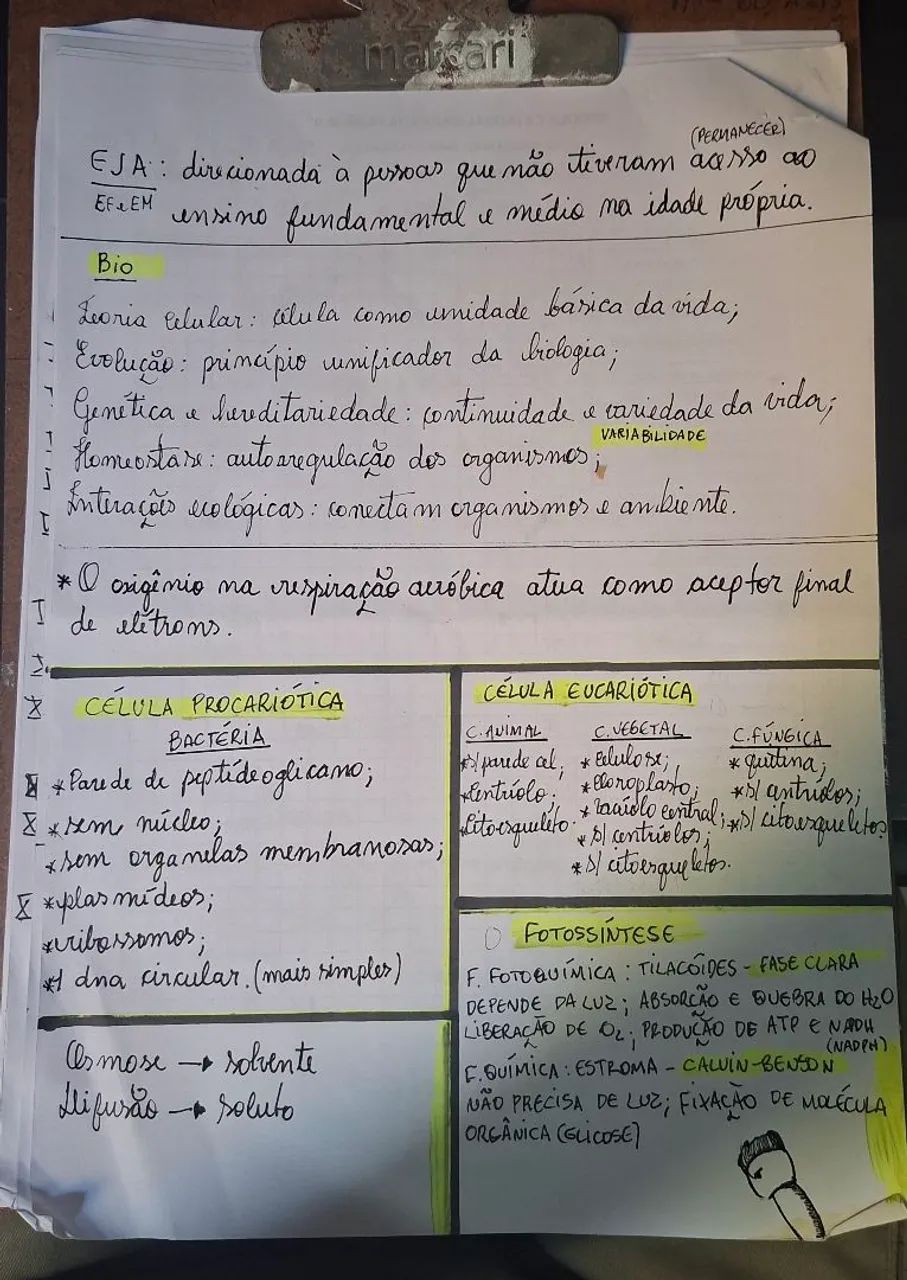 marcari
(PERMANECER)
EJA: direcionada à pessoas que não tiveram acesso ao
EF e EM ensino fundamental e médio na idade própria.
Bio
Teoria celular: célula como unidade básica da vida;
Evolução: princípio unificador da biologia;
Genética e hereditariedade: continuidade e variedade da vida;
VARIABILIDADE
Homeostase: autorregulação dos organismos;
Interações ecológicas: conectam organismos e ambiente.
* O oxigênio na respiração aeróbica atua como aceptor final
de elétrons.
CÉLULA PROCARIÓTICA
BACTÉRIA
* Parede de peptídeoglicano;
* sem núcleo;
* sem organelas membranosas;
* plasmídeos;
* ribossomos;
* 1 dna circular. (mais simples)
Osmose → solvente
Difusão → soluto
CÉLULA EUCARIÓTICA
C. ANIMAL
* s/ parede cel;
* Centríolo;
Citoesqueleto.
C. VEGETAL
* Celulose;
* Cloroplasto;
* vacúolo central;
* s/ centríolos;
* s/ citoesqueletos.
C. FÚNGICA
* quitina;
* s/ centríolos;
* s/ citoesqueletos
FOTOSSÍNTESE
F. FOTOQUÍMICA: TILACÓIDES - FASE CLARA
DEPENDE DA LUZ; ABSORÇÃO E QUEBRA DO H2O
LIBERAÇÃO DE O2; PRODUÇÃO DE ATP E NADH
(NADPH)
F. QUÍMICA: ESTROMA - CALVIN-BENSON
NÃO PRECISA DE LUZ; FIXAÇÃO DE MOLÉCULA
ORGÂNICA (GLICOSE)